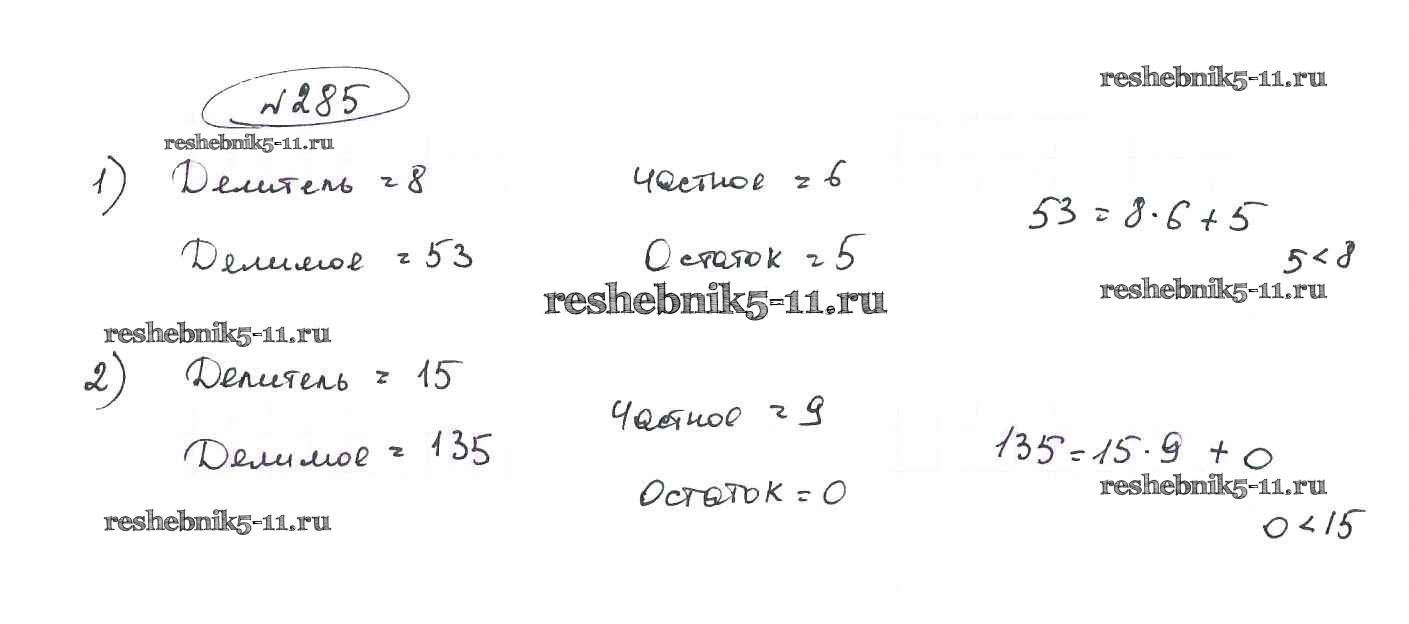 №285
reshebnik5-11.ru
reshebnik5-11.ru
1) Делитель = 8
Частное = 6
53 = 8·6+5
Делимое = 53
Остаток = 5
5<8
reshebnik5-11.ru
reshebnik5-11.ru
reshebnik5-11.ru
2) Делитель = 15
Частное = 9
135=15·9 + 0
Делимое = 135
Остаток = 0
reshebnik5-11.ru
reshebnik5-11.ru
0<15